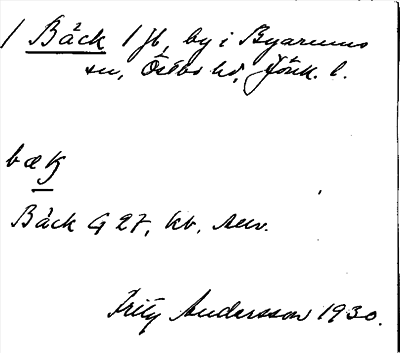 1 Bäck 1 jb, by i Byarums
sn, Östbo hd, Jönk. l.
bæk
Bäck G 27, kb,
Fritz Andersson 1930.